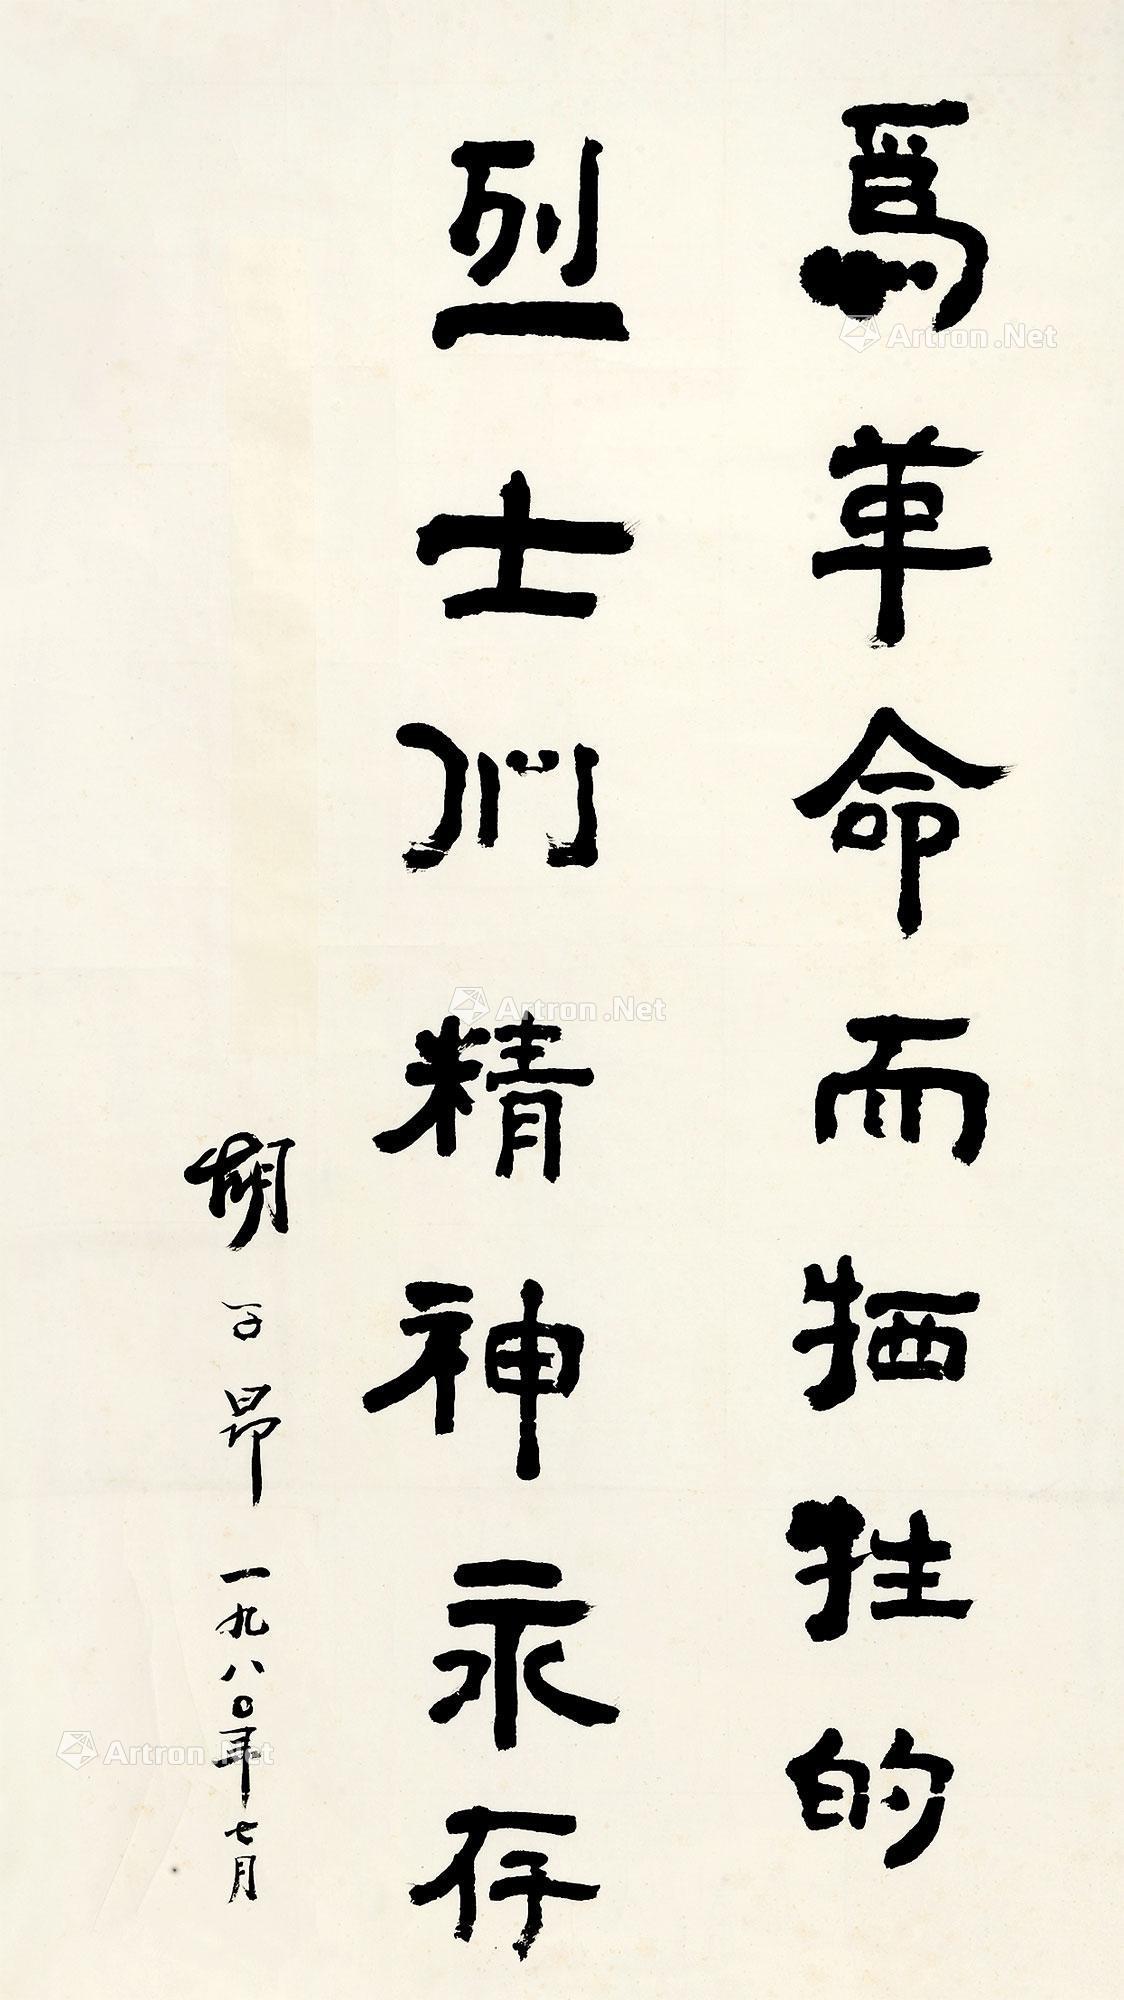 爲革命而牺牲的
烈士們精神永存
胡子昂 一九八〇年七月
Artron.Net
Artron.Net
Artron.Net